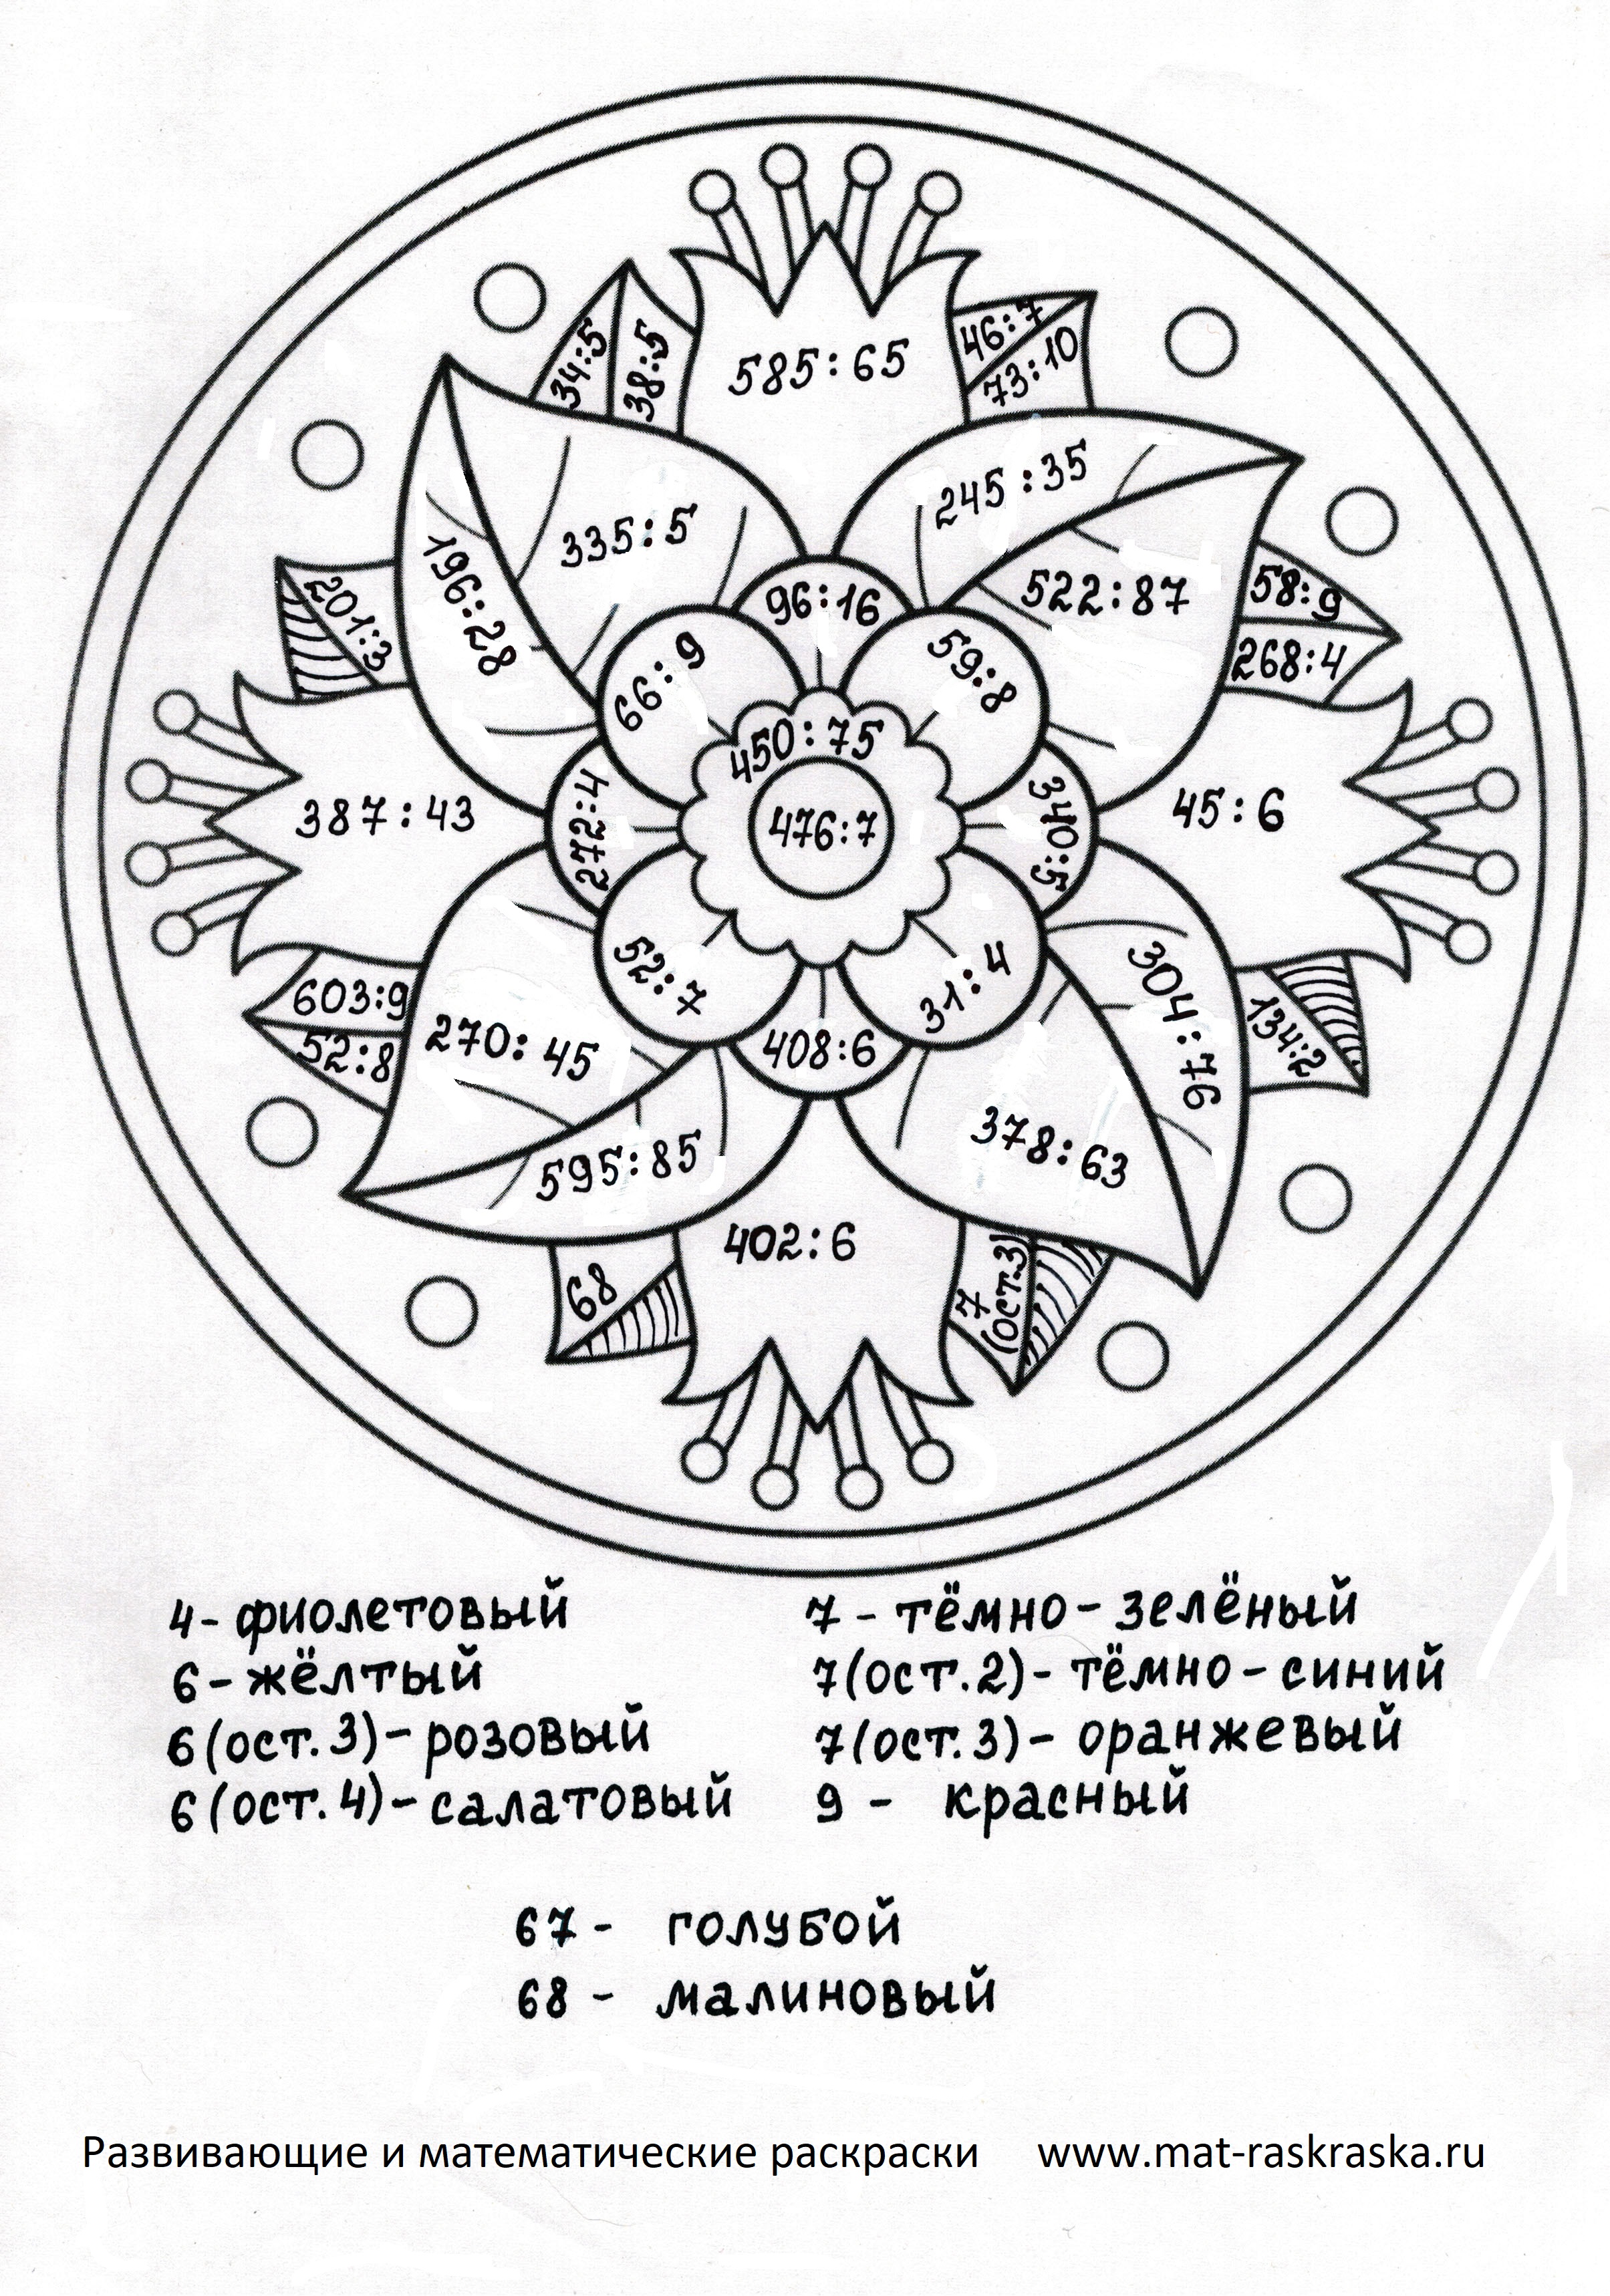 585:65
34:5
38:5
46:7
73:10
335:5
245:35
196:28
522:87
201:3
58:9
268:4
96:16
66:9
59:8
450:75
476:7
387:43
272:4
340:5
45:6
603:9
52:8
270:45
52:7
31:4
408:6
304:76
134:2
595:85
378:63
402:6
68
7
(ост.3)
4- фиолетовый
6- жёлтый
6(ост.3)- розовый
6(ост.4)- салатовый
7 - тёмно-зелёный
7(ост.2)- тёмно-синий
7(ост.3)- оранжевый
9 - красный
67- голубой
68 - малиновый
Развивающие и математические раскраски www.mat-raskraska.ru